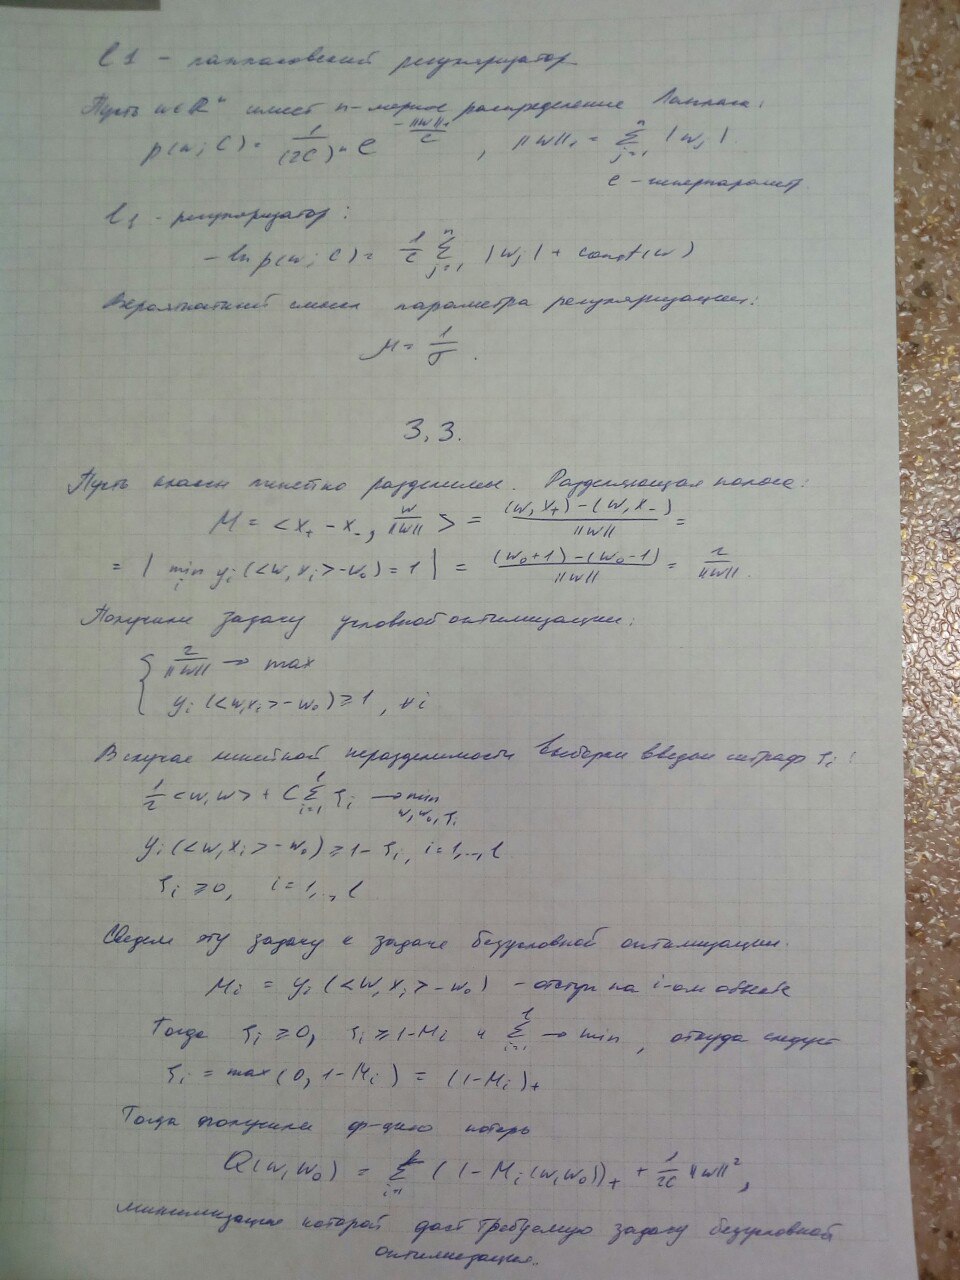 l1 - лапласовский регуляризатор
Пусть w ∈ R^n имеет n-мерное распределение Лапласа:
p(w; C) = 1/(2C)^n e^(-||w||₁/C), ||w||₁ = Σ_{j=1}^n |w_j|
C - гиперпараметр
l₁ - регуляризатор:
-ln p(w; C) = 1/C Σ_{j=1}^n |w_j| + const(w)
Вероятностный смысл параметра регуляризации:
μ = 1/σ.
3,3.
Пусть классы линейно разделимы. Разделяющая полоса:
M = <x₊ - x₋, w/||w||> = ((w, x₊) - (w, x₋))/||w|| =
= | min_i y_i(<w, x_i> - w₀) = 1 | = ((w₀+1) - (w₀-1))/||w|| = 2/||w||.
Получили задачу условной оптимизации:
{ 2/||w|| → max
y_i(<w, x_i> - w₀) ≥ 1, ∀i
В случае линейной неразделимости выборки введем штраф ξ_i:
1/2 <w, w> + C Σ_{i=1}^l ξ_i → min_{w, w₀, ξ_i}
y_i(<w, x_i> - w₀) ≥ 1 - ξ_i, i=1,..,l
ξ_i ≥ 0, i=1,..,l
Сведем эту задачу к задаче безусловной оптимизации.
M_i = y_i(<w, x_i> - w₀) - отступ на i-ом объекте
Тогда ξ_i ≥ 0, ξ_i ≥ 1 - M_i и Σ_{i=1}^l → min, откуда следует
ξ_i = max(0, 1 - M_i) = (1 - M_i)₊
Тогда получили ф-цию потерь
Q(w, w₀) = Σ_{i=1}^l (1 - M_i(w, w₀))₊ + 1/2C ||w||²,
минимизация которой даст требуемую задачу безусловной
оптимизации..